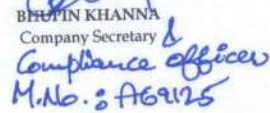 BHUPIN KHANNA
Company Secretary &
Compliance officer
M.No.: A69125